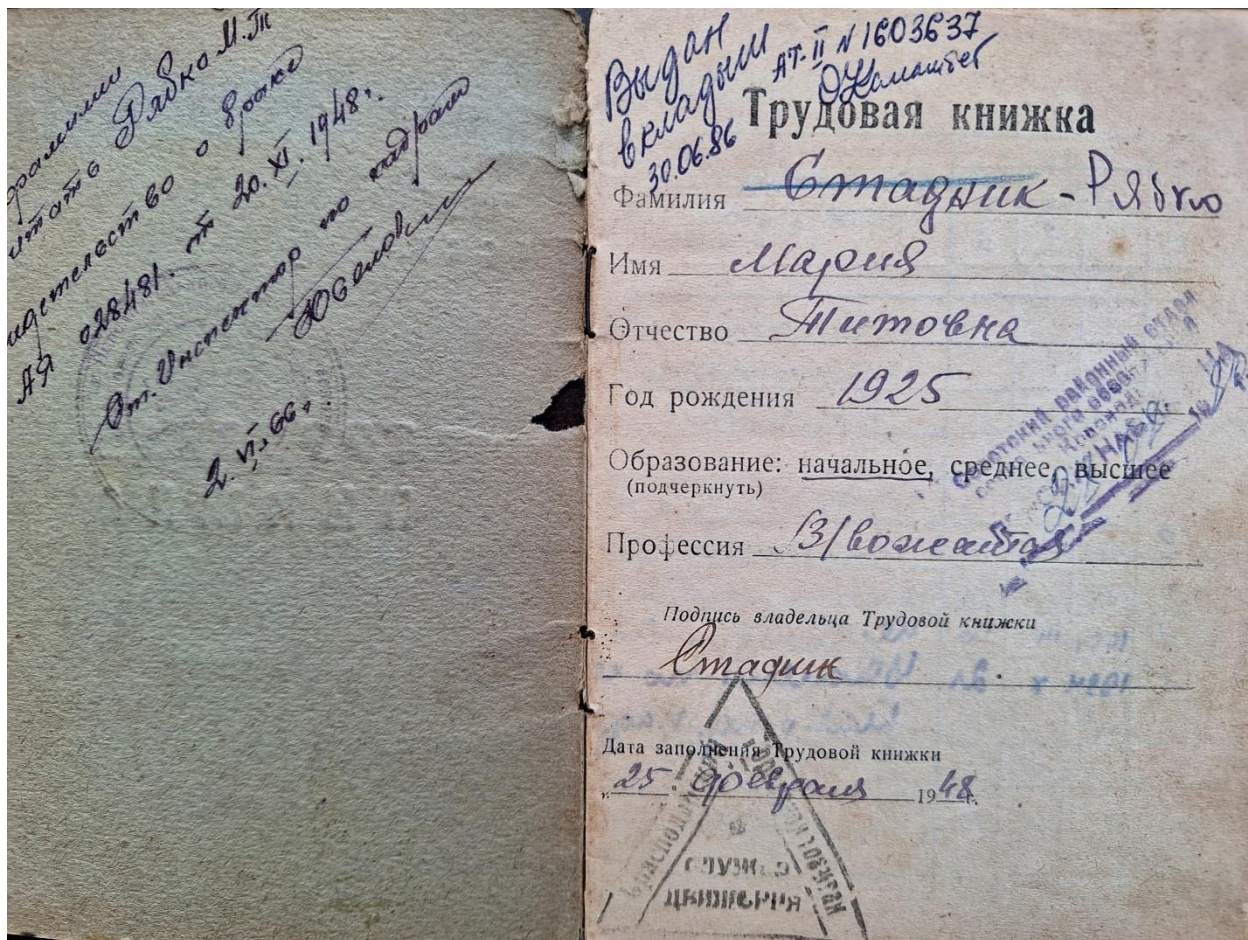 фамилии
читать Рябко М.Т
свидетельство о браке
АЯ 028481. от 20.XI.1948г.
Ст. Инспектор по кадрам
2.VI.66г.
Выдан
вкладыш АТ-II N1603637
30.06.86
Трудовая книжка
Фамилия Стадник-Рябко
Имя Мария
Отчество Титовна
Год рождения 1925
Образование: начальное, среднее, высшее
(подчеркнуть)
Профессия В/вожатая
Подпись владельца Трудовой книжки
Стадник
Дата заполнения Трудовой книжки
„25" февраля 1948г.
районный отдел
СЛУЖБА
ДВИЖЕНИЯ